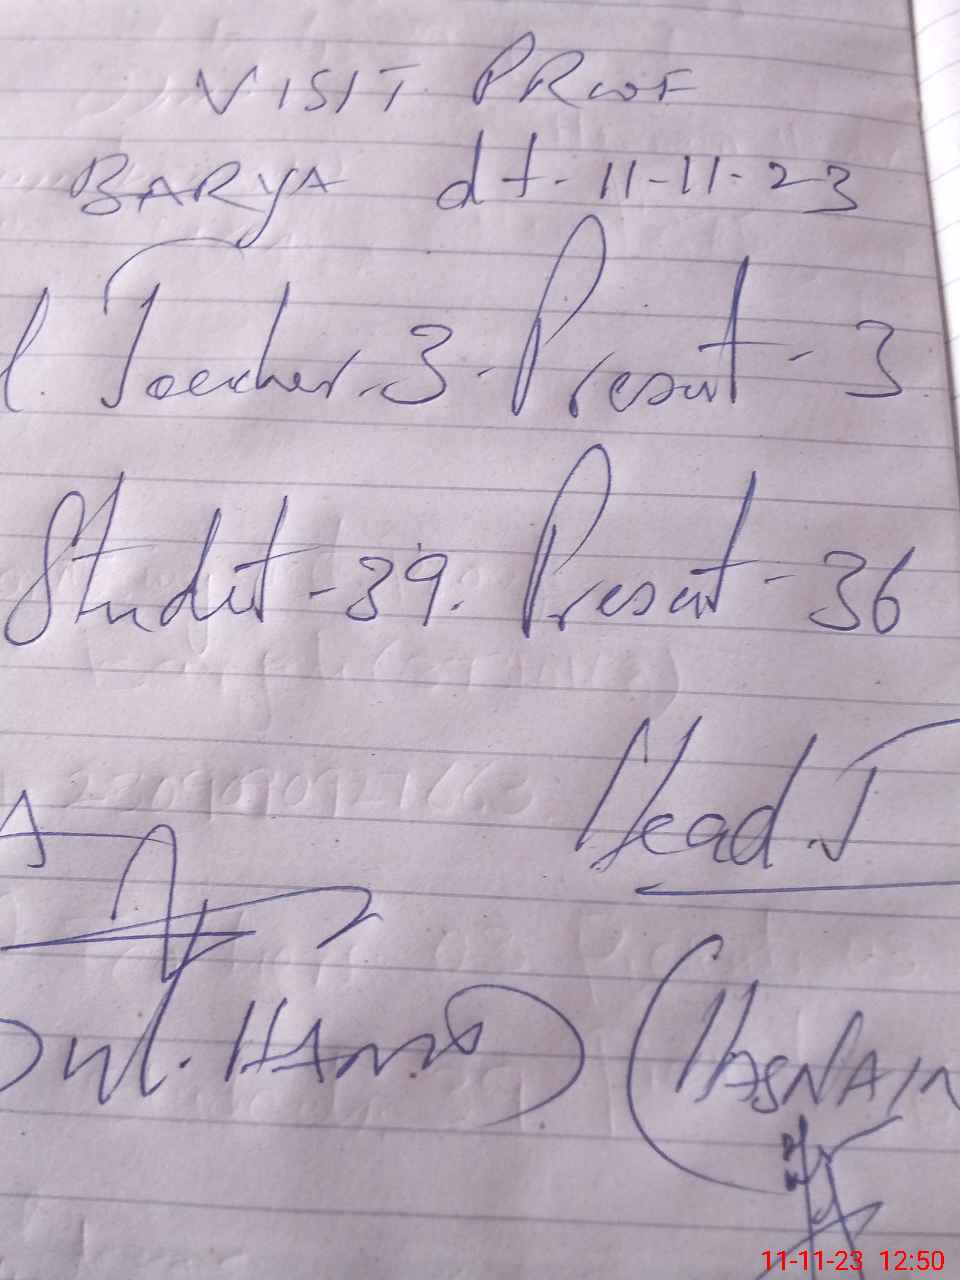 VISIT PROOF
BARYA dt-11-11-23
1. Teacher-3-Present-3
Student-39. Present-36
Head.T
A
HAmid) (HASNAIN
11-11-23 12:50